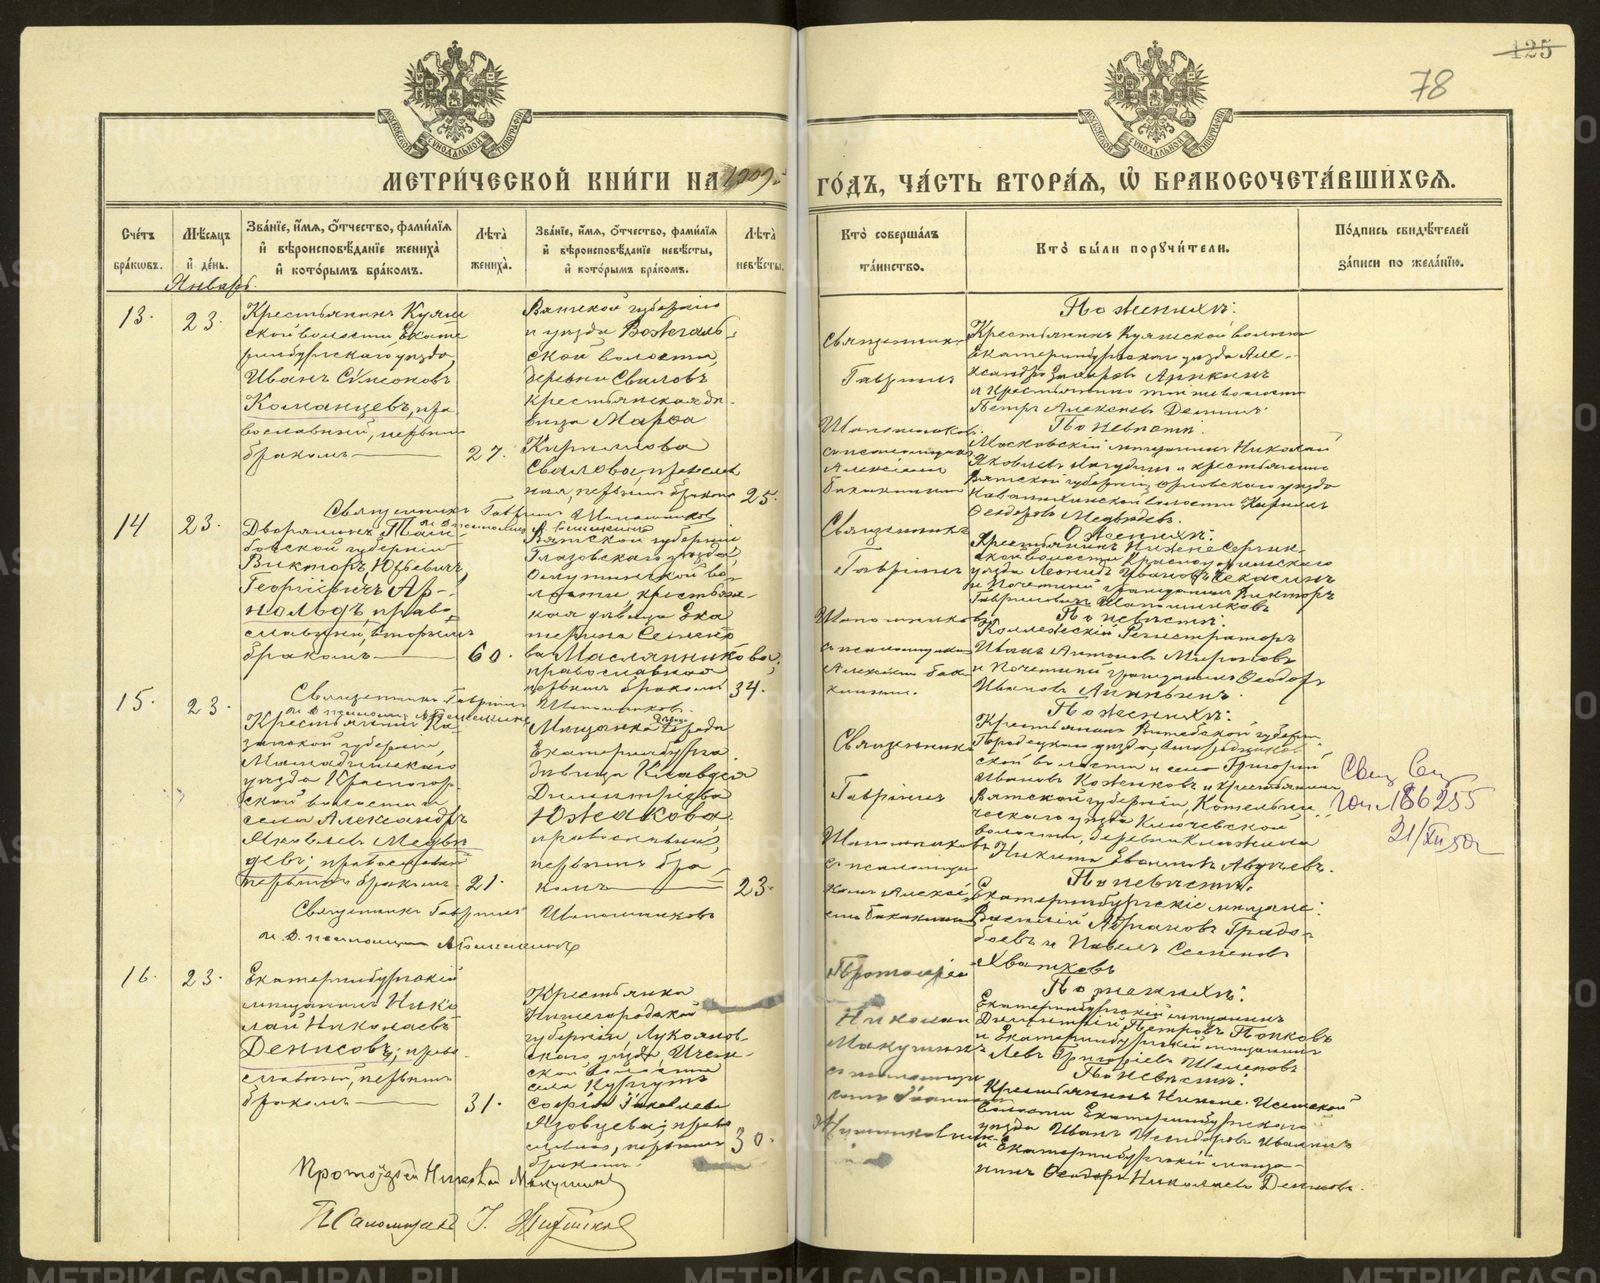 125
78
МЕТРИ́ЧЕСКОЙ КНИ́ГИ НА 1909
ГО́ДЪ, ЧА́СТЬ ВТОРА́Я, Ѽ БРАКОСОЧЕТА́ВШИХСЯ.
Сче́тъ бра́ковъ.
Мѣ́сяцъ и де́нь.
Зва́нїе, и́мя, ѻ́тчество, фами́лїя
и вѣроисповѣ́данїе жениха̀
и кото́рымъ бра́комъ.
Лѣ́та жениха̀.
Зва́нїе, и́мя, ѻ́тчество, фами́лїя
и вѣроисповѣ́данїе невѣ́сты,
и кото́рымъ бра́комъ.
Лѣ́та невѣ́сты.
Кто̀ соверша́лъ та́инство.
Кто̀ бы́ли поручи́тели.
По́дпись свидѣ́телей
за́писи по жела́нїю.
Январь.
13.
23.
Крестьянинъ Куяш
ской волости Екате
ринбургскаго уѣзда,
Иванъ Сѵмеоновъ
Команцевъ, пра
вославный, первымъ
бракомъ
27.
Вятской губерніи
и уѣзда Вожгаль
ской волости,
деревни Сваловъ
крестьянская дѣ
вица Марѳа
Кириллова
Свалова, православ
ная, первымъ бракомъ
25.
Священникъ
Гавріилъ
Шапошниковъ
съ псаломщикомъ
Алексіемъ
По женихѣ:
Крестьянинъ Куяшской волости
Екатеринбургскаго уѣзда Але-
ксандръ Захаровъ Аникинъ
и крестьянинъ той же волости
Петръ Алексѣевъ Деминъ.
По невѣстѣ:
Московскій мѣщанинъ Николай
Яковлевъ
и крестьянинъ
Вятской губерніи Орловскаго уѣзда
волости Кириллъ
Ѳеодоровъ Медвѣдевъ.
Священникъ Гавріилъ Шапошниковъ
14
23.
Дворянинъ Там-
бовской губерніи
Викторъ Юрьевичъ
Георгіевичъ Ар-
нольдъ, право
славный, вторымъ
бракомъ
60.
Вятской губерніи
Глазовскаго уѣзда,
Омутнинской во
лости крестьян-
ская дѣвица Ека
терина Семено
ва Маслянникова,
православная
первымъ бракомъ
34.
Священникъ
Гавріилъ
Шапошниковъ
съ псаломщикомъ
Алексіемъ
О женихѣ:
Крестьянинъ Нижнесергин-
ской волости Красноуфимскаго
уѣзда Леонидъ Ивановъ Чекасинъ
и Почетный гражданинъ Викторъ
Гавриловичъ Шапошниковъ
По невѣстѣ:
Коллежскій Регистраторъ
Иванъ Антоновъ Мироновъ
и Почетный гражданинъ Ѳеодоръ
Ивановъ Ананьинъ.
Священникъ Гавріилъ Шапошниковъ.
15.
23.
Крестьянинъ Ка
занской губерніи,
Мамадышскаго
уѣзда Красногор-
ской волости и
села Александръ
Яковлевъ Медвѣ
девъ, православный
первымъ бракомъ
21.
Мѣщанка города
Екатеринбурга
дѣвица Клавдія
Димитріева
Южакова,
православная,
первымъ бра-
комъ
23.
Священникъ
Гавріилъ
Шапошниковъ
съ псаломщи
комъ Алексі
По женихѣ:
Крестьянинъ Витебской губерніи
Городецкаго уѣзда,
ской волости и села Григорій
Ивановъ Кожиковъ и крестьянинъ
Вятской губерніи, Котельни-
ческаго уѣзда Ключевской
волости,
Никита
Авдѣевъ.
По невѣстѣ:
Екатеринбургскіе мѣщане:
Василій Абрамовъ Градо-
боевъ и Павелъ Семеновъ
Хватковъ
186255
21/XII 50 г
Священникъ Гавріилъ Шапошниковъ
16.
23.
Екатеринбургскій
мѣщанинъ Нико
лай Николаевъ
Денисовъ, право
славный, первымъ
бракомъ
31.
Крестьянка
Нижегородской
губерніи, Лукоянов-
скаго уѣзда,
ской волости
села
Софія Яковлева
Язовцева, право
славная, первымъ
бракомъ.
30.
Протоіерей
Николай
Макушинъ
съ псаломщи
комъ
По женихѣ:
Екатеринбургскій мѣщанинъ
Димитрій Петровъ Попковъ
и Екатеринбургскій мѣщанинъ
Левъ Григорьевъ Шелеповъ
По невѣстѣ:
Крестьянинъ Нижне-Исетской
волости Екатеринбургскаго
уѣзда Иванъ Исидоровъ
и Екатеринбургскій мѣща-
нинъ Ѳеодоръ Николаевъ Денисовъ.
Протоіерей Николай Макушинъ
Псаломщикъ
METRIKI.GASO-URAL.RU